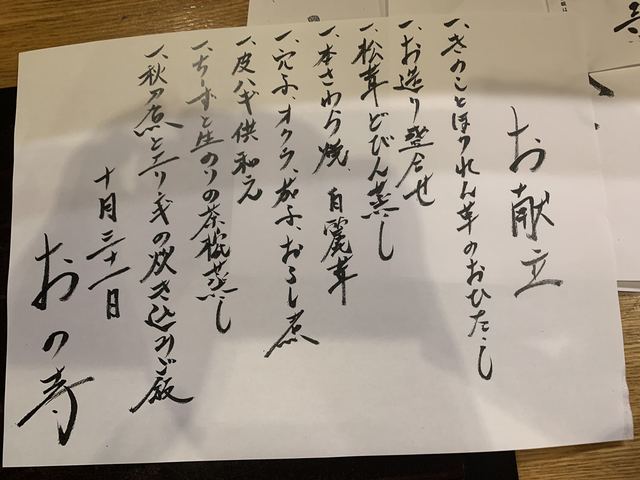 お献立
一、きのことほうれん草のおひたし
一、お造り盛合せ
一、松茸どびん蒸し
一、本さわら焼 自麗茸
一、穴子、オクラ、茄子、おろし煮
一、皮ハギ供和え
一、ちーずと生のりの茶椀蒸し
一、秋刀煮とエリンギの炊き込みご飯
十月三十一日
おの寺